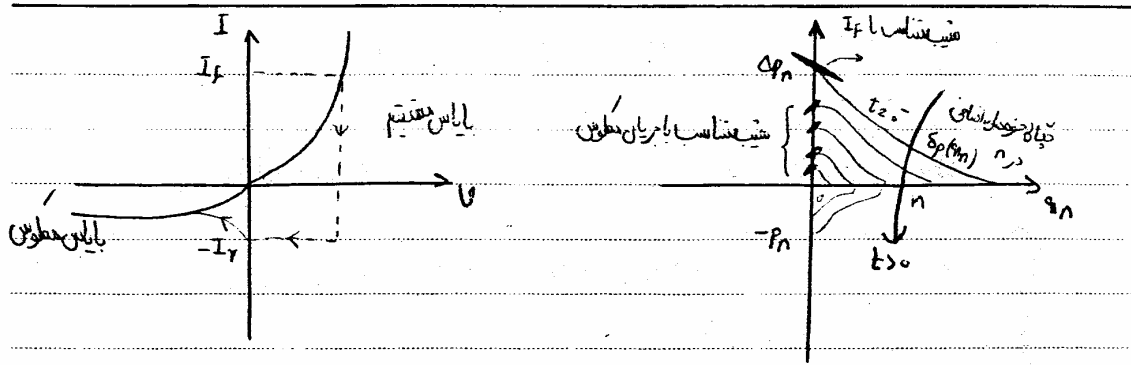 I
I_f
بایاس مستقیم
V
بایاس معکوس
-I_r
شیب متناسب با I_f
Δp_n
t=0-
شیب متناسب با جریان معکوس
δp(x_n)
در n
n
x_n
0
-p_n
t>0